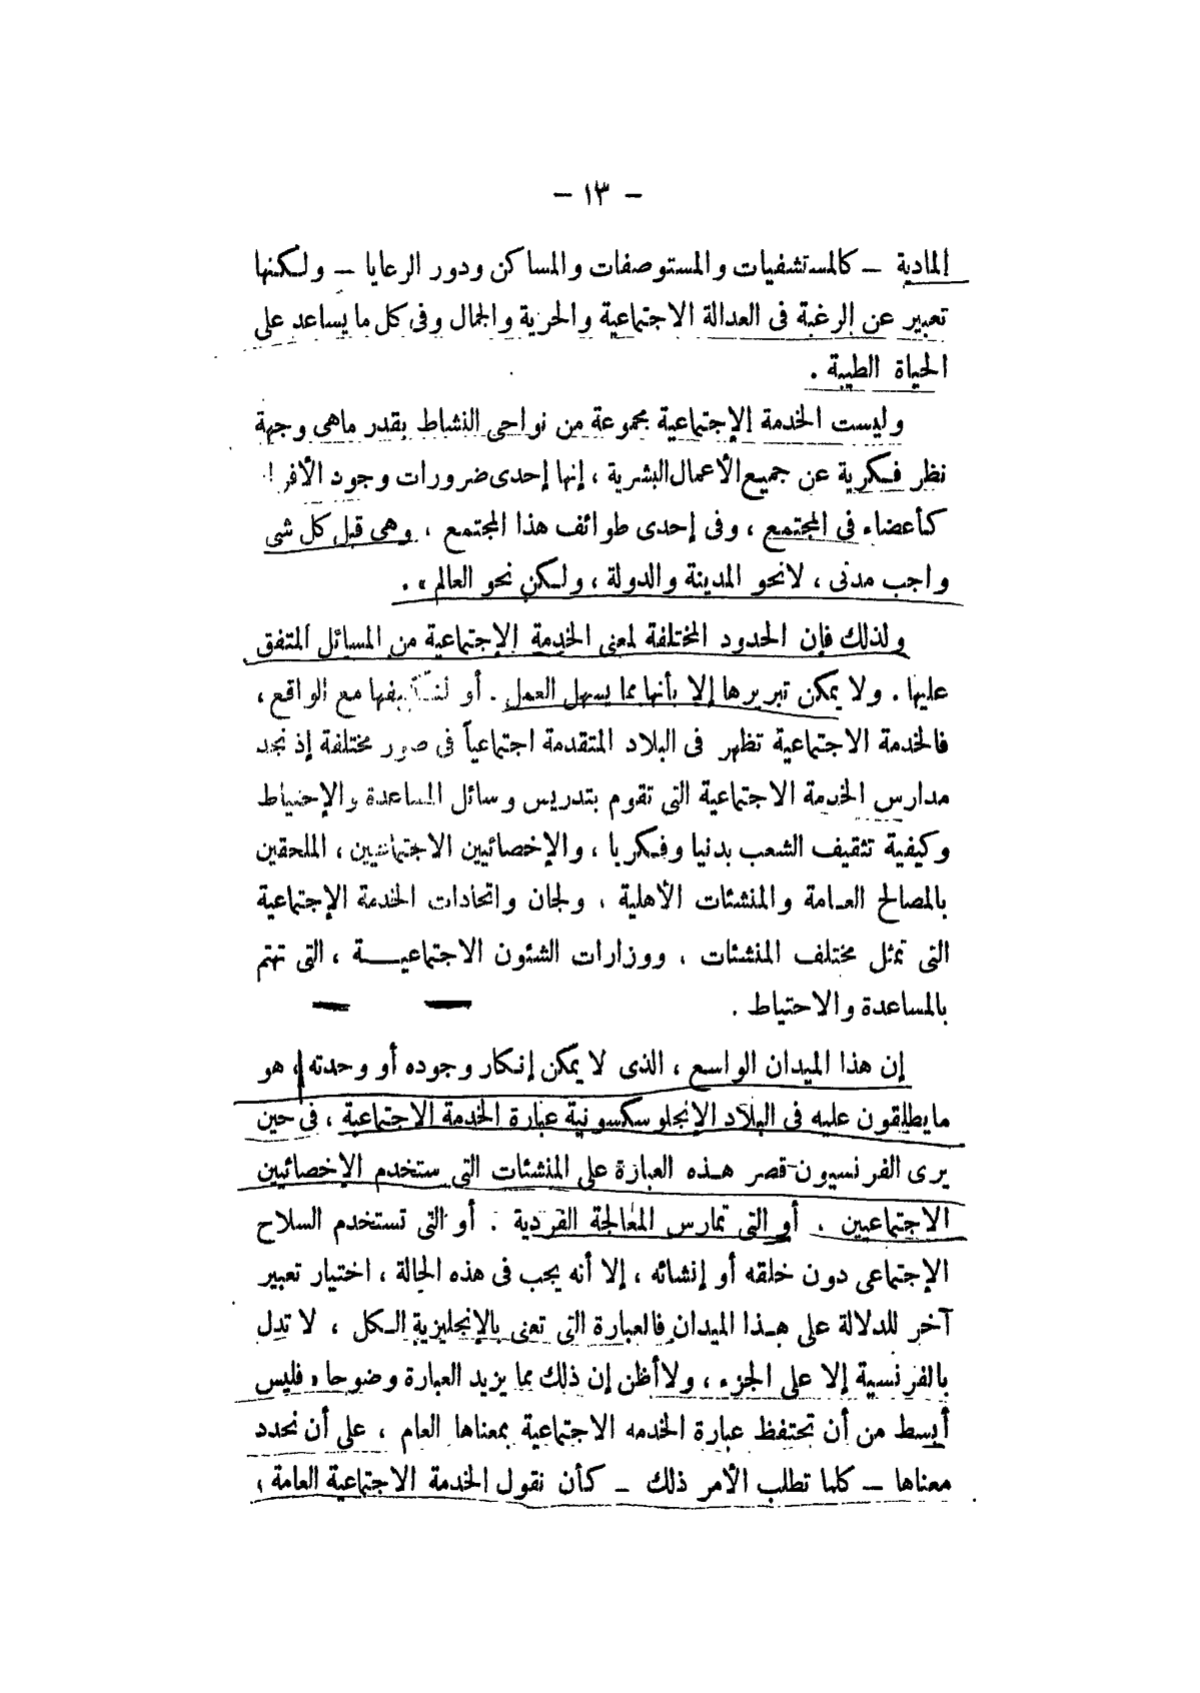 – ١٣ –
المادية – كالمستشفيات والمستوصفات والمساكن ودور الرعايا – ولكنها
تعبير عن الرغبة فى العدالة الاجتماعية والحرية والجمال وفى كل ما يساعد على
الحياة الطيبة .
وليست الخدمة الإجتماعية مجموعة من نواحى النشاط بقدر ماهى وجهة
نظر فكرية عن جميع الأعمال البشرية ، إنها إحدى ضرورات وجود الأفراد
كأعضاء فى المجتمع ، وفى إحدى طوائف هذا المجتمع ، وهى قبل كل شى
واجب مدنى ، لانحو المدينة والدولة ، ولكن نحو العالم » .
ولذلك فإن الحدود المختلفة لمعنى الخدمة الإجتماعية من المسائل المتفق
عليها . ولا يمكن تبريرها إلا بأنها مما يسهل العمل . أو لتكييفها مع الواقع ،
فالخدمة الاجتماعية تظهر فى البلاد المتقدمة اجتماعياً فى صور مختلفة إذ نجد
مدارس الخدمة الاجتماعية التى تقوم بتدريس وسائل المساعدة والإحتياط
وكيفية تثقيف الشعب بدنيا وفكريا ، والإخصائيين الاجتماعيين ، الملحقين
بالمصالح العامة والمنشئات الأهلية ، ولجان واتحادات الخدمة الإجتماعية
التى تمثل مختلف المنشئات ، ووزارات الشئون الاجتماعيــة ، التى تهتم
بالمساعدة والاحتياط .
إن هذا الميدان الواسع ، الذى لا يمكن إنكار وجوده أو وحدته ، هو
مايطلقون عليه فى البلاد الإنجلوسكسونية عبارة الخدمة الاجتماعية ، فى حين
يرى الفرنسيون قصر هذه العبارة على المنشئات التى ستخدم الإخصائيين
الاجتماعيين ، أو التى تمارس المعالجة الفردية . أو التى تستخدم السلاح
الإجتماعى دون خلقه أو إنشائه ، إلا أنه يجب فى هذه الحالة ، اختيار تعبير
آخر للدلالة على هذا الميدان فالعبارة التى تعنى بالإنجليزية الكل ، لا تدل
بالفرنسية إلا على الجزء ، ولاأظن إن ذلك مما يزيد العبارة وضوحا ، فليس
أبسط من أن تحتفظ عبارة الخدمه الاجتماعية بمعناها العام ، على أن نحدد
معناها – كلما تطلب الأمر ذلك – كأن نقول الخدمة الاجتماعية العامة ،